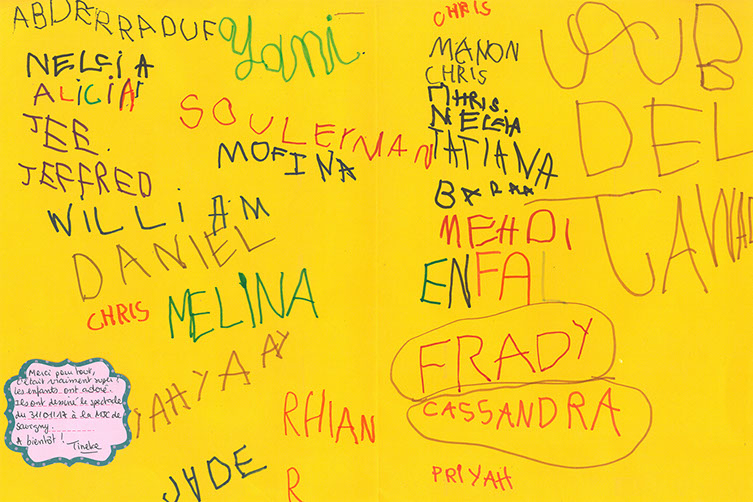 ABDERRAOUF
Yani
NELCIA
ALICIA
JEE.
JEFFRED
SOULEYMAN
MOFINA
WILLIAM
DANIEL
CHRIS
MELINA
YAHYA AY
JADE
RHIAN
R
Merci pour tout,
c'était vraiment super !
les enfants ont adoré.
Ils ont dessiné le spectacle
du 31/01/17 à la MJC de
Savigny.
A bientôt !
Tineke
CHRIS
MANON
CHRIS
CHRIS.
NELCIA
TATIANA
BARAA
MEHDI
ENFAL
FRADY
CASSANDRA
PRIYAH
DEL